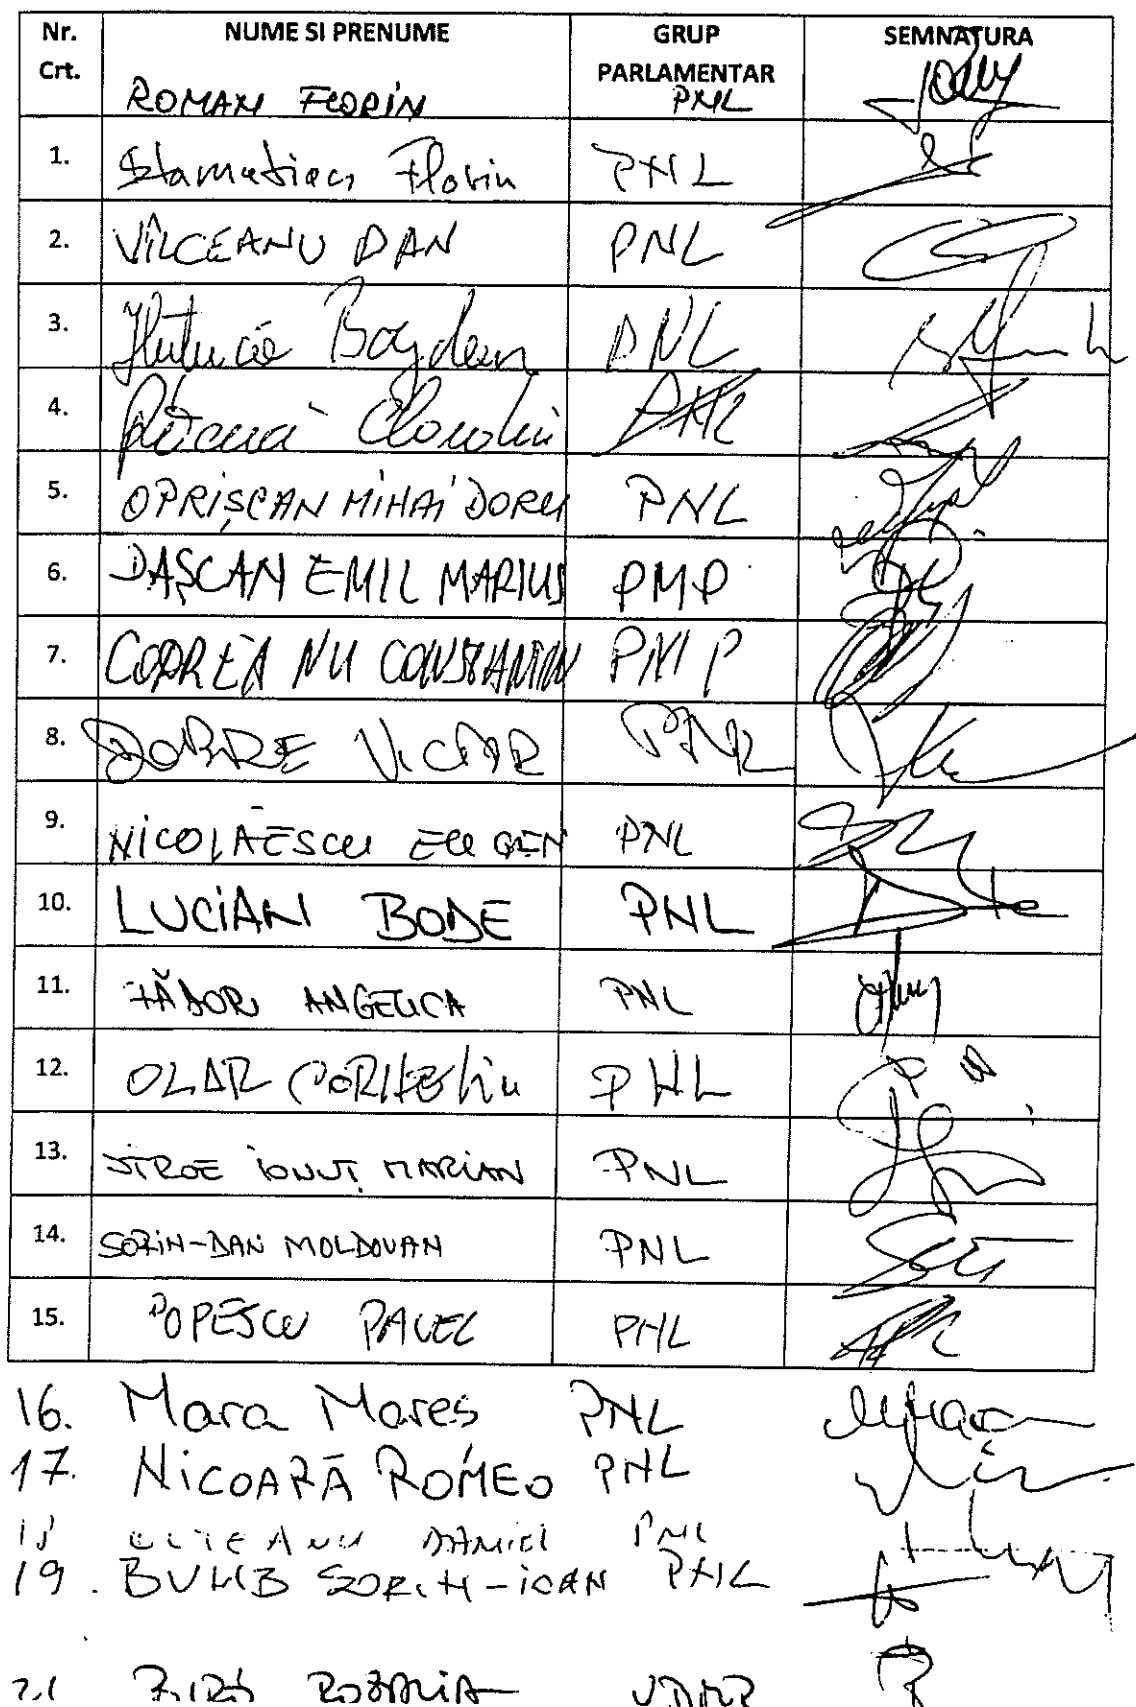 Nr. Crt. NUME SI PRENUME GRUP PARLAMENTAR SEMNATURA
ROMAN FLORIN PNL
1. Stamatian Florin PNL
2. VÎLCEANU DAN PNL
3. Huțucă Bogdan PNL
4. Claudiu PNL
5. OPRIȘCAN MIHAI DORU PNL
6. PAȘCAN EMIL MARIUS PMP
7. CODREANU CONSTANTIN PMP
8. DOBRE VICTOR PNL
9. NICOLĂESCU EUGEN PNL
10. LUCIAN BODE PNL
11. FĂDOR ANGELICA PNL
12. OLAR CORNELIU PNL
13. STROE IONUȚ MARIAN PNL
14. SORIN-DAN MOLDOVAN PNL
15. POPESCU PAVEL PNL
16. Mara Mares PNL
17. NICOARĂ ROMEO PNL
18 DANIEL PNL
19. BUMB SORIN-IOAN PNL
21 BIRÓ ROZALIA UDMR